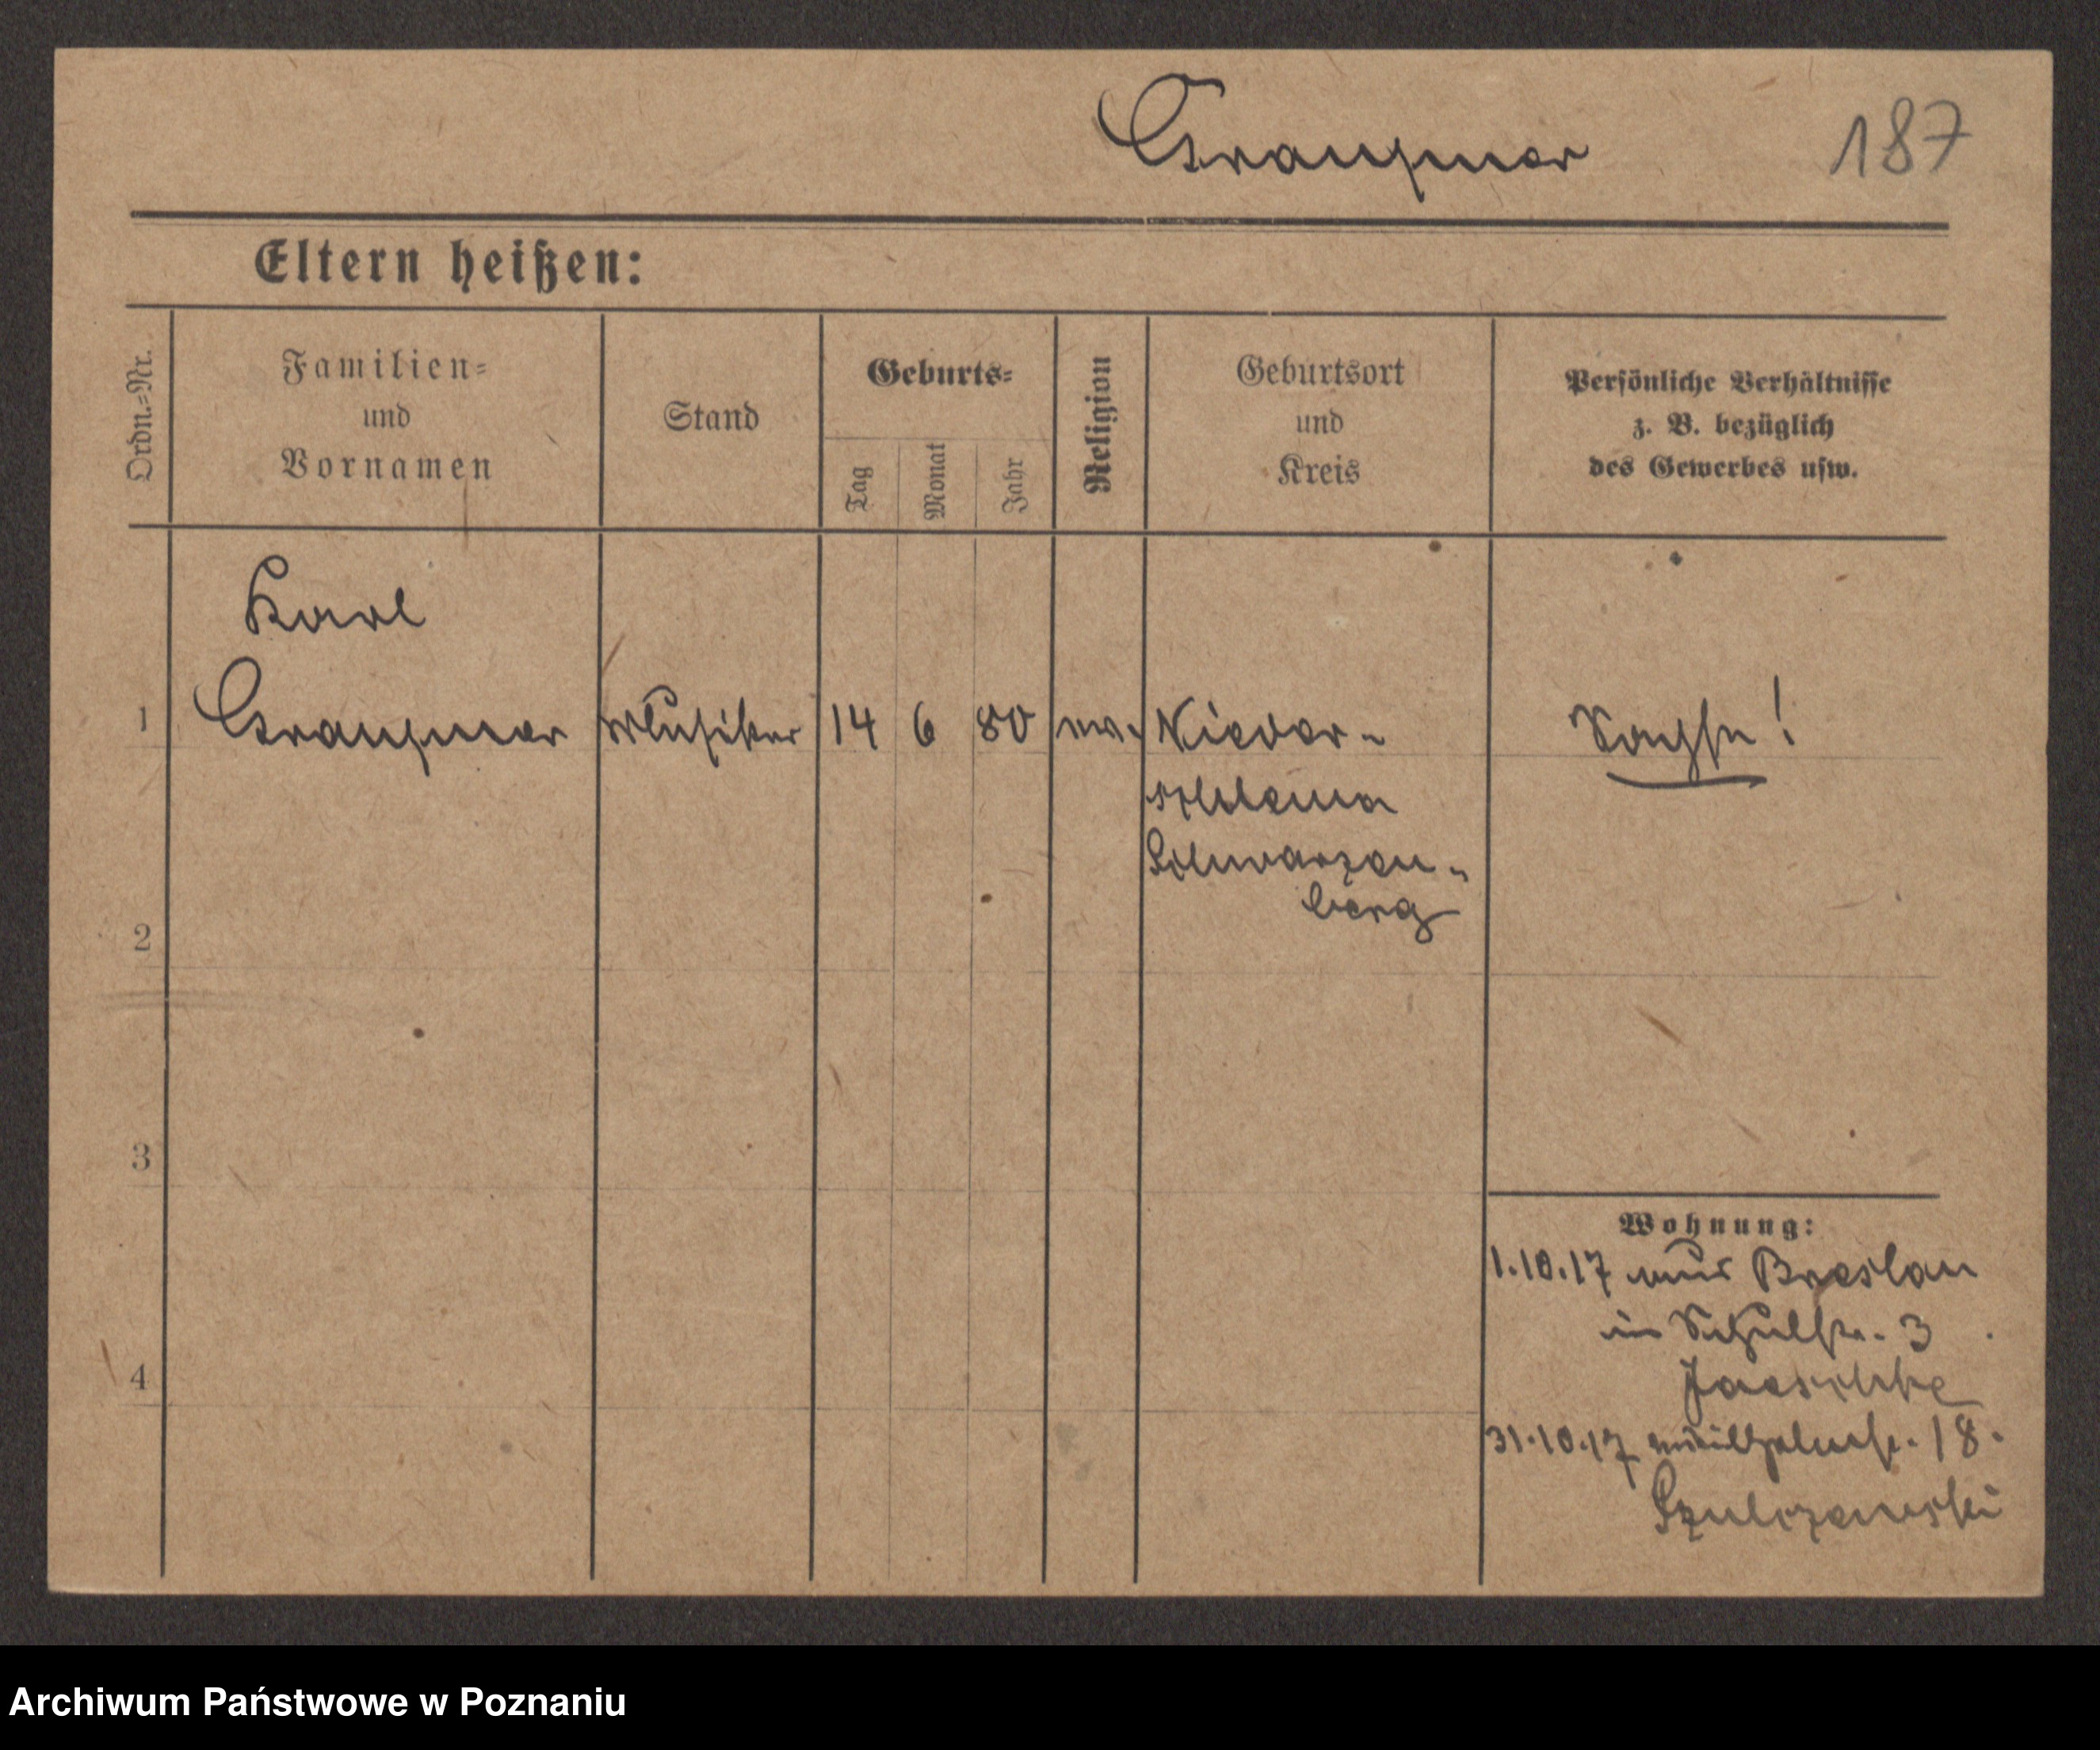 Graupner 187
Eltern heißen:
Ordn.=Nr. Familien= und Vornamen Stand Geburts= Tag Monat Jahr Religion Geburtsort und Kreis Persönliche Verhältnisse z. B. bezüglich des Gewerbes usw.
Karl
1 Graupner Musiker 14 6 80 ev. Nieder- Sachse!
schlema
Schwarzen-
berg
2
3
Wohnung:
1.10.17 aus Breslau
in Schulstr. 3
4 Jaeschke
31.10.17 18.
Szulczewski
Archiwum Państwowe w Poznaniu